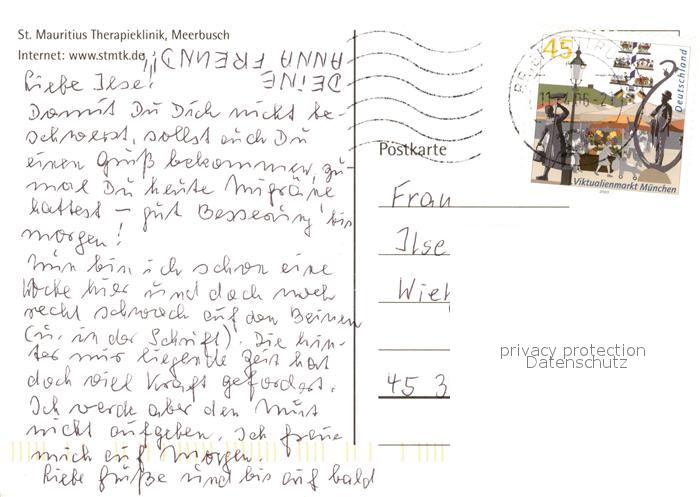 St. Mauritius Therapieklinik, Meerbusch
Internet: www.stmtk.de
Liebe Ilse!
Damit Du Dich nicht be-
schwerst, sollst auch Du
einen Gruß bekommen, zu-
mal Du heute Migräne
hattest – gut Besserung bis
morgen!
Nun bin ich schon eine
Woche hier und doch noch
recht schwach auf den Beinen
(u. in der Schrift). Die hin-
ter mir liegende Zeit hat
doch viel Kraft gefordert.
Ich werde aber den Mut
nicht aufgeben. Ich freue
mich auf morgen.
Liebe Grüße und bis auf bald
DEINE
ANNA FREUND!
Postkarte
Frau
Ilse
45 3
45
Deutschland
Viktualienmarkt München
2003
privacy protection
Datenschutz